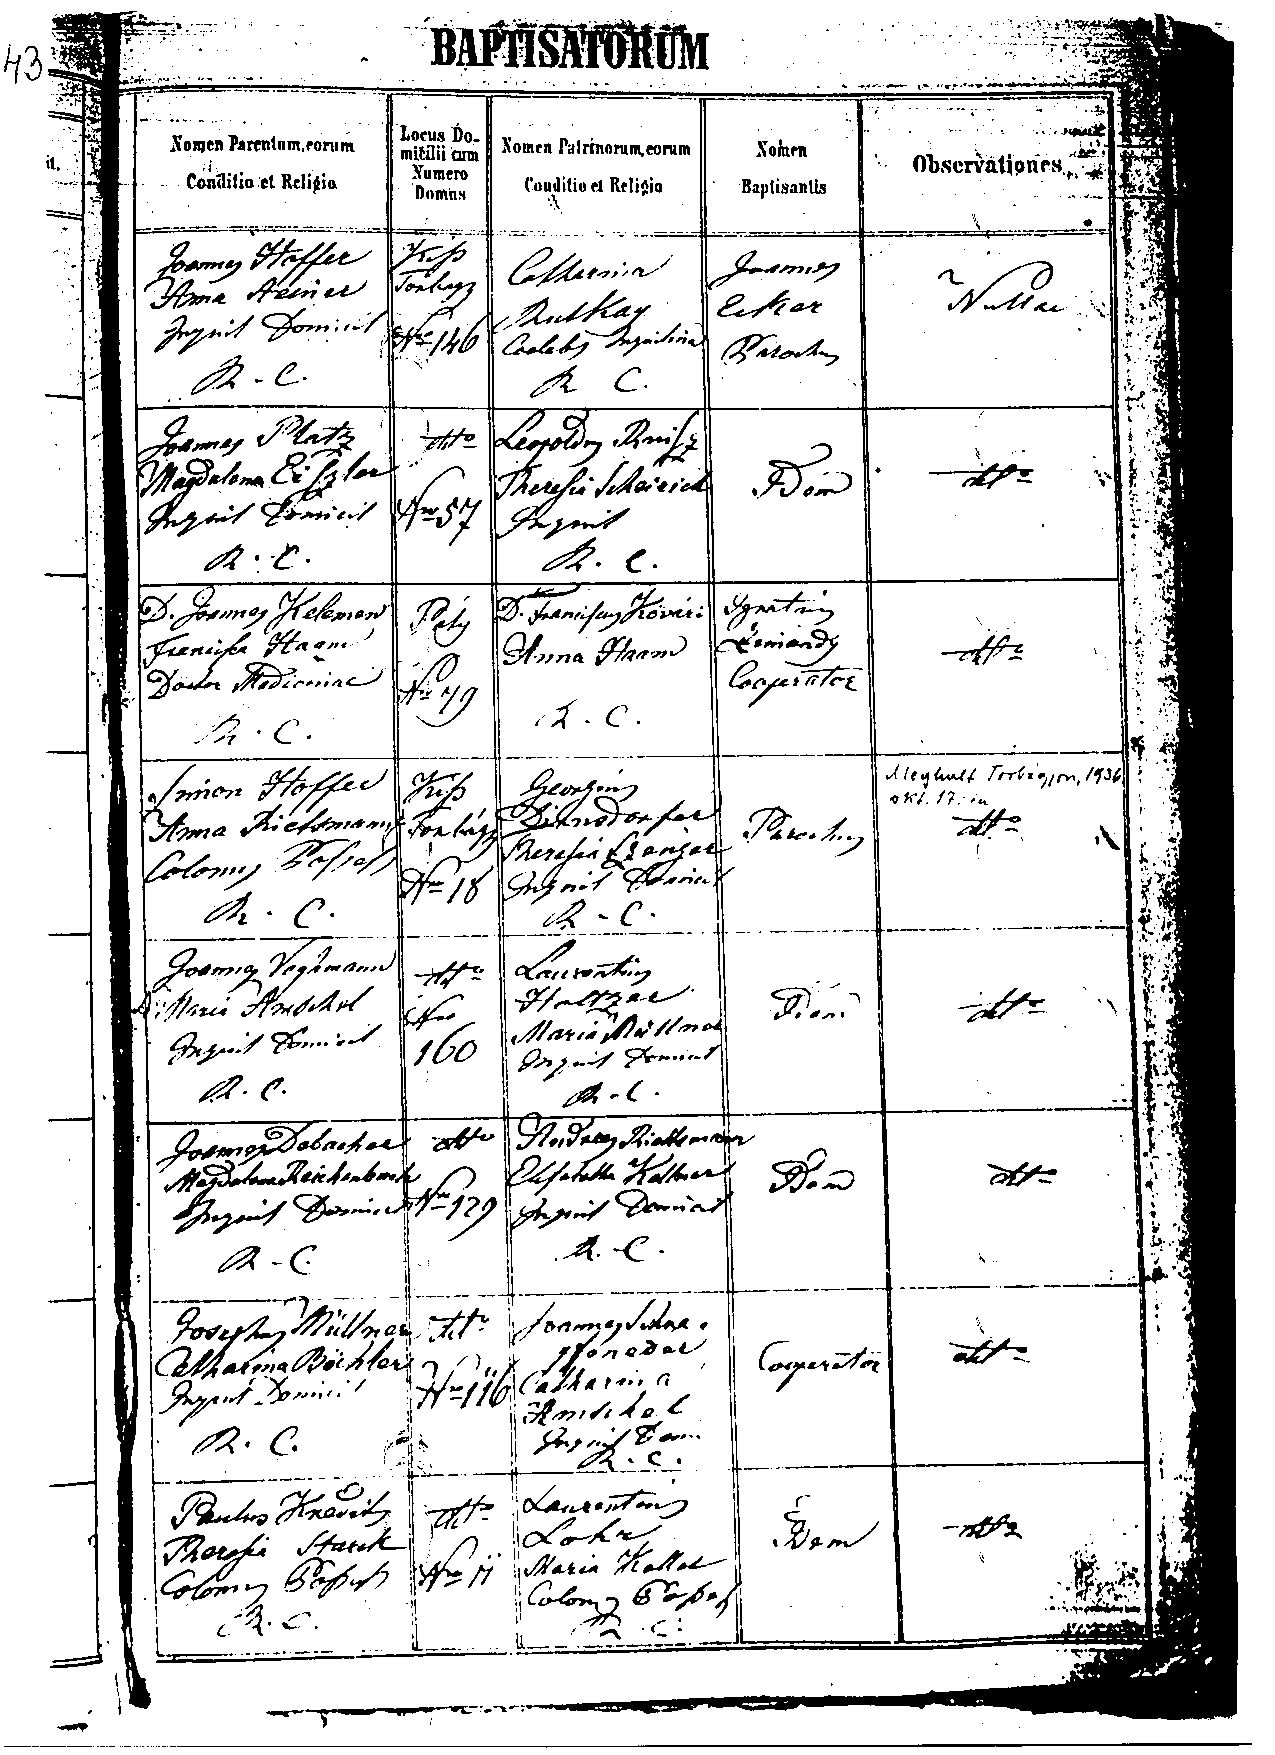 43
BAPTISATORUM
it.
Nomen Parentum, eorum
Conditio et Religio
Locus Do-
micilii cum
Numero
Domus
Nomen Patrinorum, eorum
Conditio et Religio
Nomen
Baptisantis
Observationes
Joannes Hoffer
Anna
Inquil Domicil
R. C.
Kiss
Torbágy
Nro 146
Catharina
Rutkay
Coelebs Inquilina
R C.
Joannes
Ecker
Parochus
Nullae
Joannes Platz
Magdalena Eiszler
Inquil Domicil
R. C.
dtto
Nro 57
Leopoldus
Theresia
Inquil
R. C.
Idem
dtto
D. Joannes Kelemen
Francisca Haam
Doctor Medicinae
R. C.
Páty
Nro 79
D. Franciscus Kóvári
Anna Haam
R. C.
Ignatius
Cooperator
dtto
Simon Hoffer
Anna Rietsmann
Colonus Possess
R. C.
Kiss
Torbágy
Nro 18
Georgius
Dirnsdorfer
Theresia
Inquil Domicil
R. C.
Parochus
Meghalt Torbágyon, 1936
okt. 17.-én
dtto
Joannes
Maria Amschel
Inquil Domicil
R. C.
dtto
Nro
160
Laurentius
Holtzer
Maria Müllner
Inquil Domicil
R. C.
Idem
dtto
Joannes Debacher
Magdalena Reichenbach
Inquil Domicil
R. C.
dtto
Nro 129
Andreas Rietsmann
Elisabetha Kellner
Inquil Domicil
R. C.
Idem
dtto
Josephus Müllner
Catharina Bechler
Inquil Domicil
R. C.
dtto
Nro 116
Joannes
Catharina
Amschel
Inquil Dom.
R. C.
Cooperator
dtto
Paulus
Theresia Starck
Colonus Possess
R. C.
dtto
Nro 11
Laurentius
Lohr
Maria
Colonus Possess
R. C.
Idem
dtto